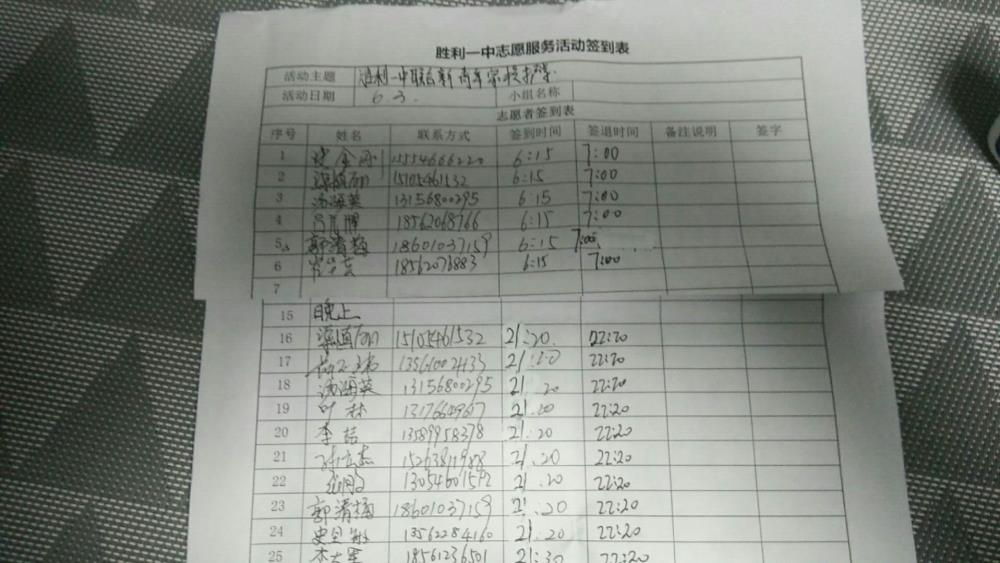 胜利一中志愿服务活动签到表
活动主题 胜利一中联合新青年家校护学
活动日期 6.3. 小组名称
志愿者签到表
序号 姓名 联系方式 签到时间 签退时间 备注说明 签字
1 15554666220 6:15 7:00
2 15105461532 6:15 7:00
3 汤海英 13156800295 6:15 7:00
4 18562068766 6:15 7:00
5 郭清梅 18601037159 6:15 7:00
6 18562076883 6:15 7:00
7
15 晚上
16 15105461532 21:20 22:20
17 13561002433 21:20 22:20
18 汤海英 13156800295 21:20 22:20
19 叶林 21:20 22:20
20 李洁 13589958378 21:20 22:20
21 21:20 22:20
22 21:20 22:20
23 郭清梅 18601037159 21:20 22:20
24 13562284160 21:20 22:20
25 18561236501 21:30 22:20